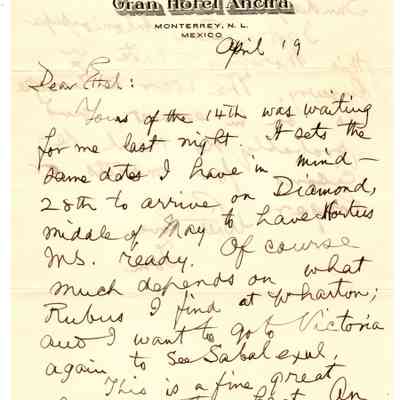 Gran Hotel Ancira
MONTERREY, N. L.
MEXICO
April 19
Dear Ethel:
Yours of the 14th was waiting
for me last night. It sets the
same dates I have in mind –
28th to arrive on Diamond,
middle of May to have Hortus
MS. ready. Of course
much depends on what
Rubus I find at Wharton;
and I want to go to Victoria
again to see Sabal exul.
This is a fine great